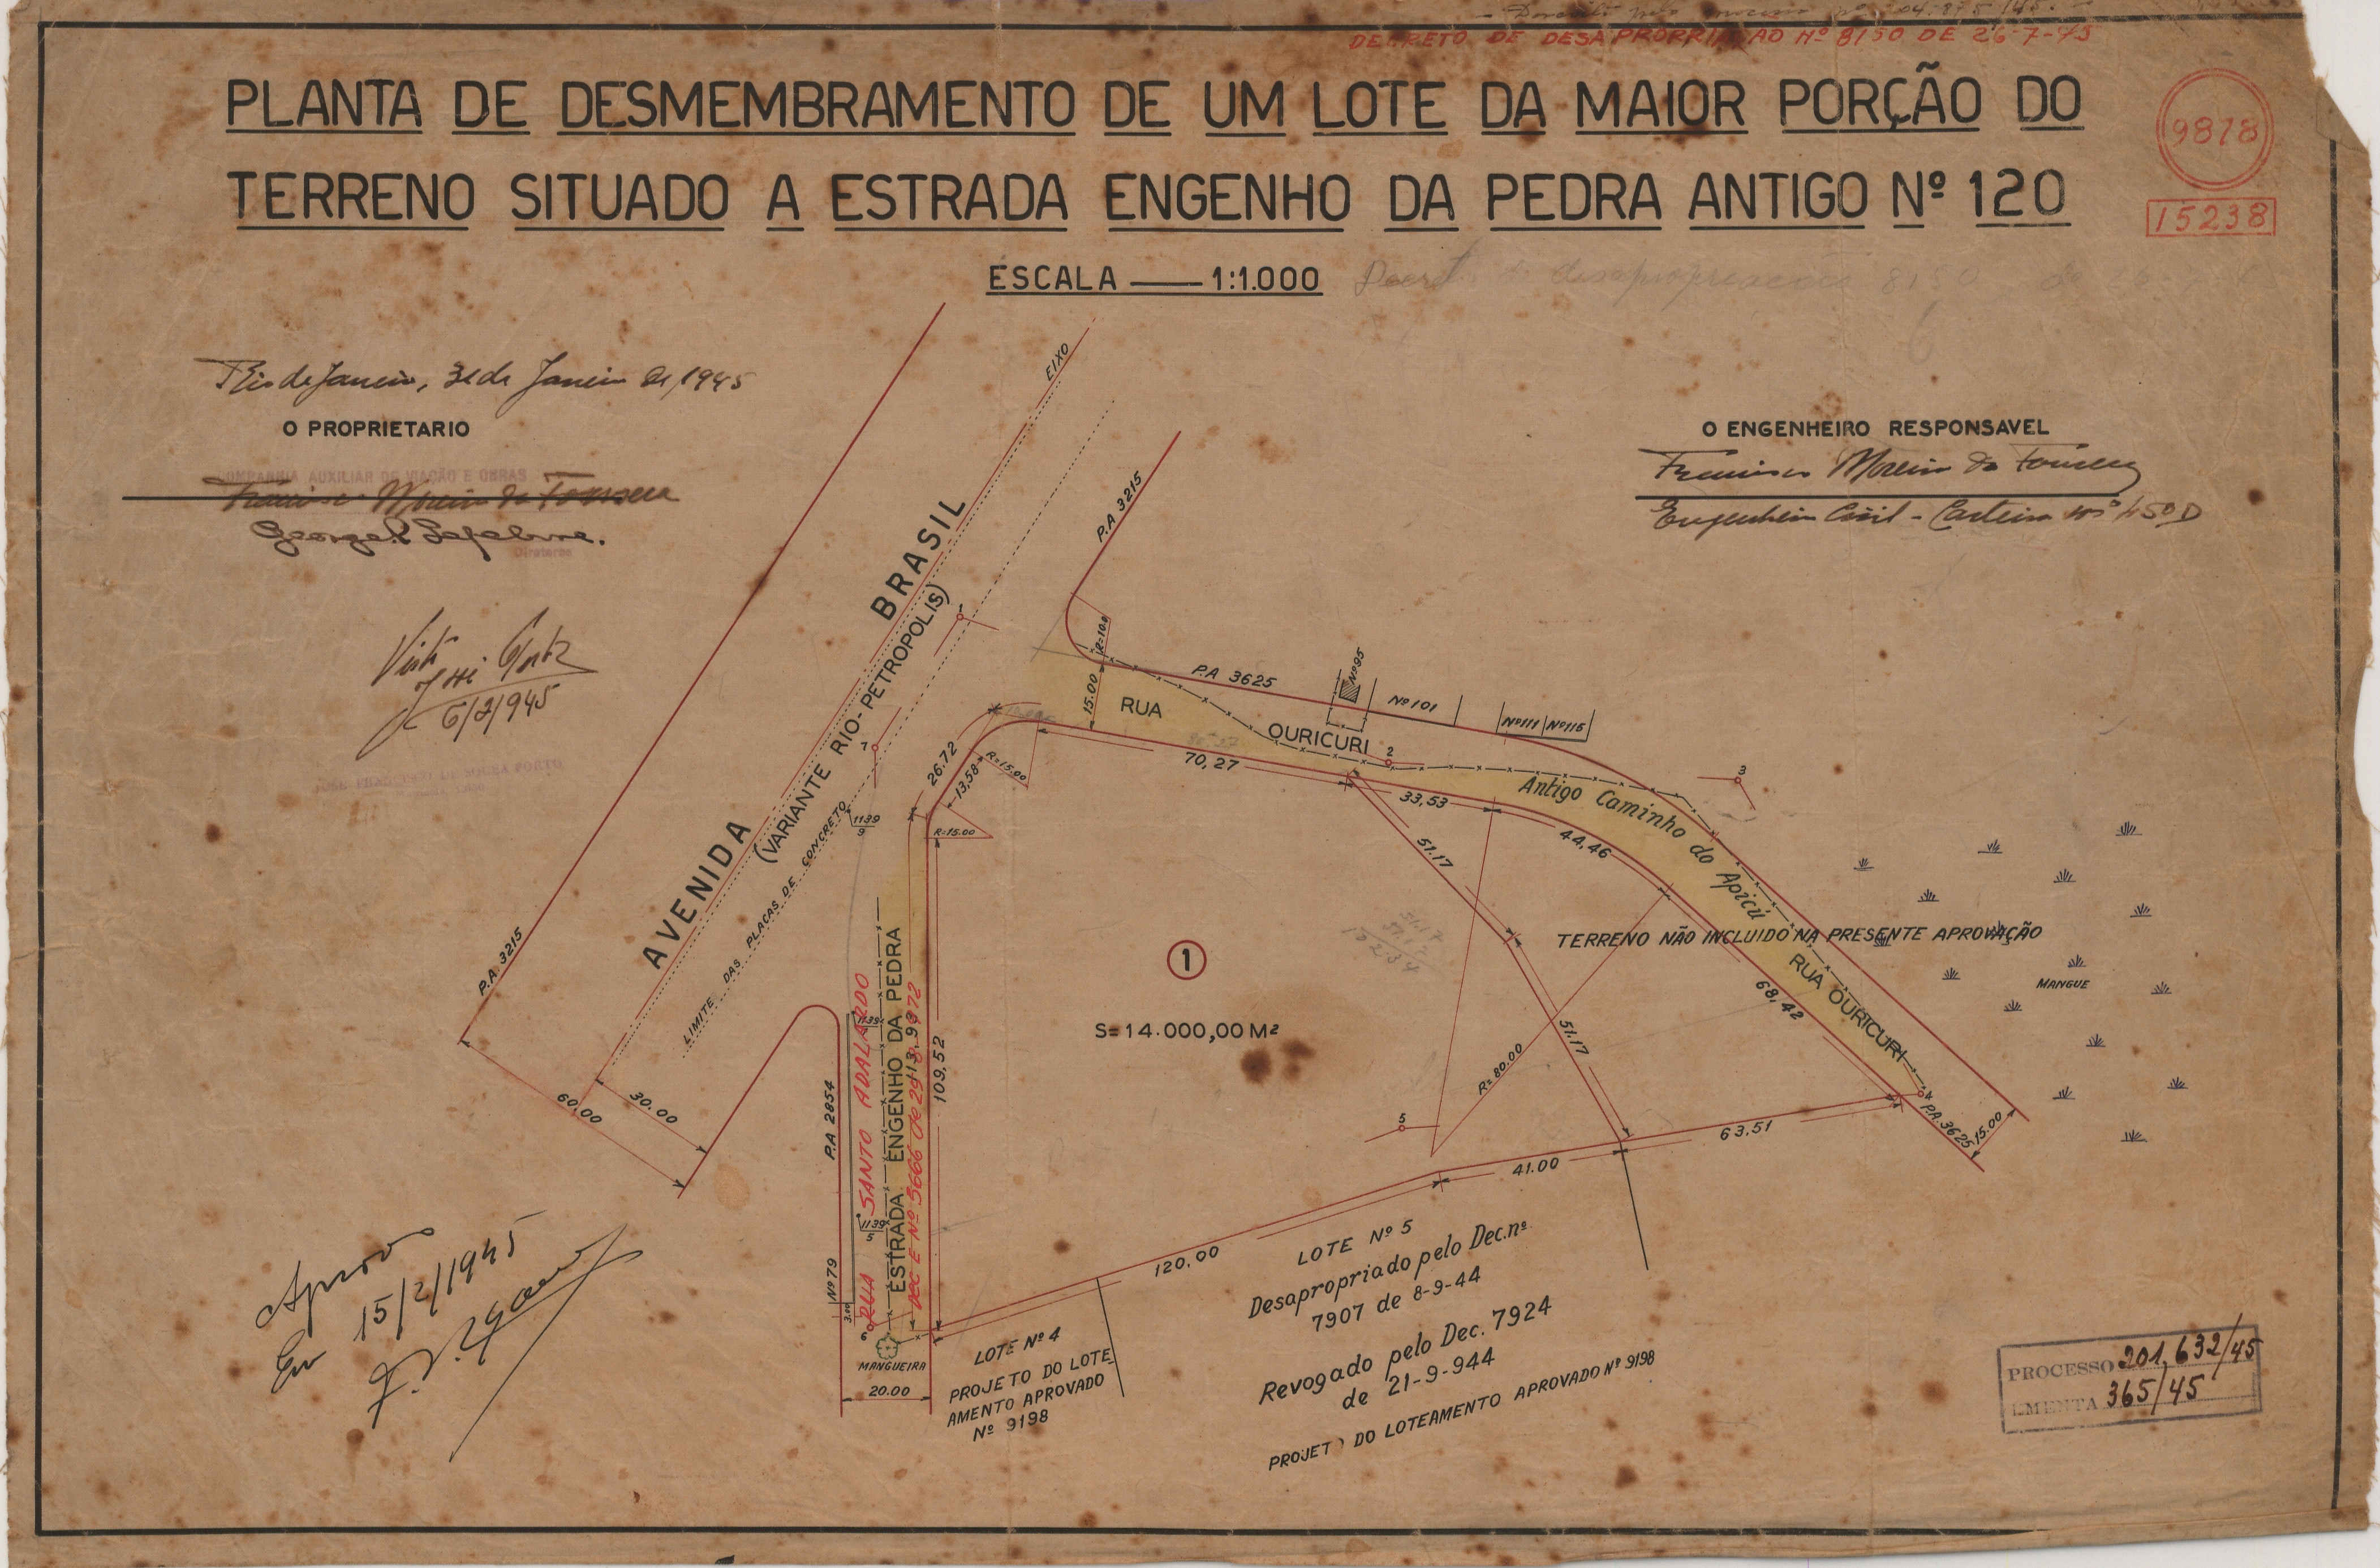 DECRETO DE DESAPROPRIAÇAO Nº 8150 DE 26-7-45
PLANTA DE DESMEMBRAMENTO DE UM LOTE DA MAIOR PORÇÃO DO
TERRENO SITUADO A ESTRADA ENGENHO DA PEDRA ANTIGO Nº 120
9878
15238
ESCALA — 1:1.000
Rio de Janeiro, 31 de Janeiro de 1945
O PROPRIETARIO
COMPANHIA AUXILIAR DE VIAÇÃO E OBRAS
Francisco Moreira da Fonseca
Georges Lefebvre.
Diretores
O ENGENHEIRO RESPONSAVEL
Francisco Moreira da Fonseca
Engenheiro Civil - Carteira nº 450 D
Visto
6/2/945
EIXO
P.A 3215
AVENIDA BRASIL
(VARIANTE RIO-PETROPOLIS)
LIMITE DAS PLACAS DE CONCRETO
P.A. 3215
60,00
30.00
1
7
1139
9
26.72
13,58
R=15.00
R=15.00
R=10.0
15.00
RUA OURICURI
P.A 3625
Nº95
Nº101
Nº111
Nº115
2
3
70,27
33,53
44,46
68,42
51.17
51.17
Antigo Caminho do Apicú
TERRENO NÃO INCLUIDO NA PRESENTE APROVAÇÃO
RUA OURICURI
MANGUE
4
P.A.3625
15.00
1
S=14.000,00 M²
R=80.00
5
63,51
41.00
120,00
109,52
113,98
ESTRADA ENGENHO DA PEDRA
RUA SANTO ADALARDO
1139
1139
5
P.A 2854
Nº79
3.00
6
MANGUEIRA
20.00
LOTE Nº 4
PROJETO DO LOTE
AMENTO APROVADO
Nº 9198
LOTE Nº 5
Desapropriado pelo Dec.nº
7907 de 8-9-44
Revogado pelo Dec. 7924
de 21-9-944
PROJETO DO LOTEAMENTO APROVADO Nº 9198
Aprovo
Em 15/2/1945
PROCESSO 201,632/45
EMENTA 365/45